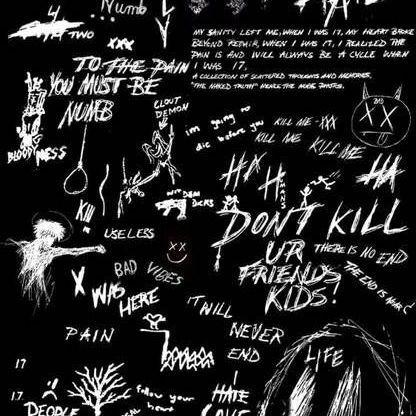 ...Numb
4
TWO
xxx
MY SANITY LEFT ME, WHEN I WAS 17, MY HEART BROKE
BEYOND REPAIR, WHEN I WAS 17, I REALIZED THE
PAIN IS AND WILL ALWAYS BE A CYCLE WHEN
I WAS 17.
A COLLECTION OF SCATTERED THOUGHTS AND MEMORIES,
"THE NAKED TRUTH" HENCE THE NUDE
TO THE PAIN
YOU MUST BE
NUMB
CLOUT
DEMON
BAD
im going to
die before you
KILL ME -XXX
KILL ME
KILL ME
BLOOD
HA
HA
HA
HUMANS
DICKS
KILL
USELESS
DON'T KILL
UR
FRIENDS
KIDS!
THERE IS NO END
THE END IS
BAD VIBES
X WAS
HERE
IT WILL
NEVER
END
PAIN
LIFE
17
17.
PEOPLE
follow your
HATE
LOVE